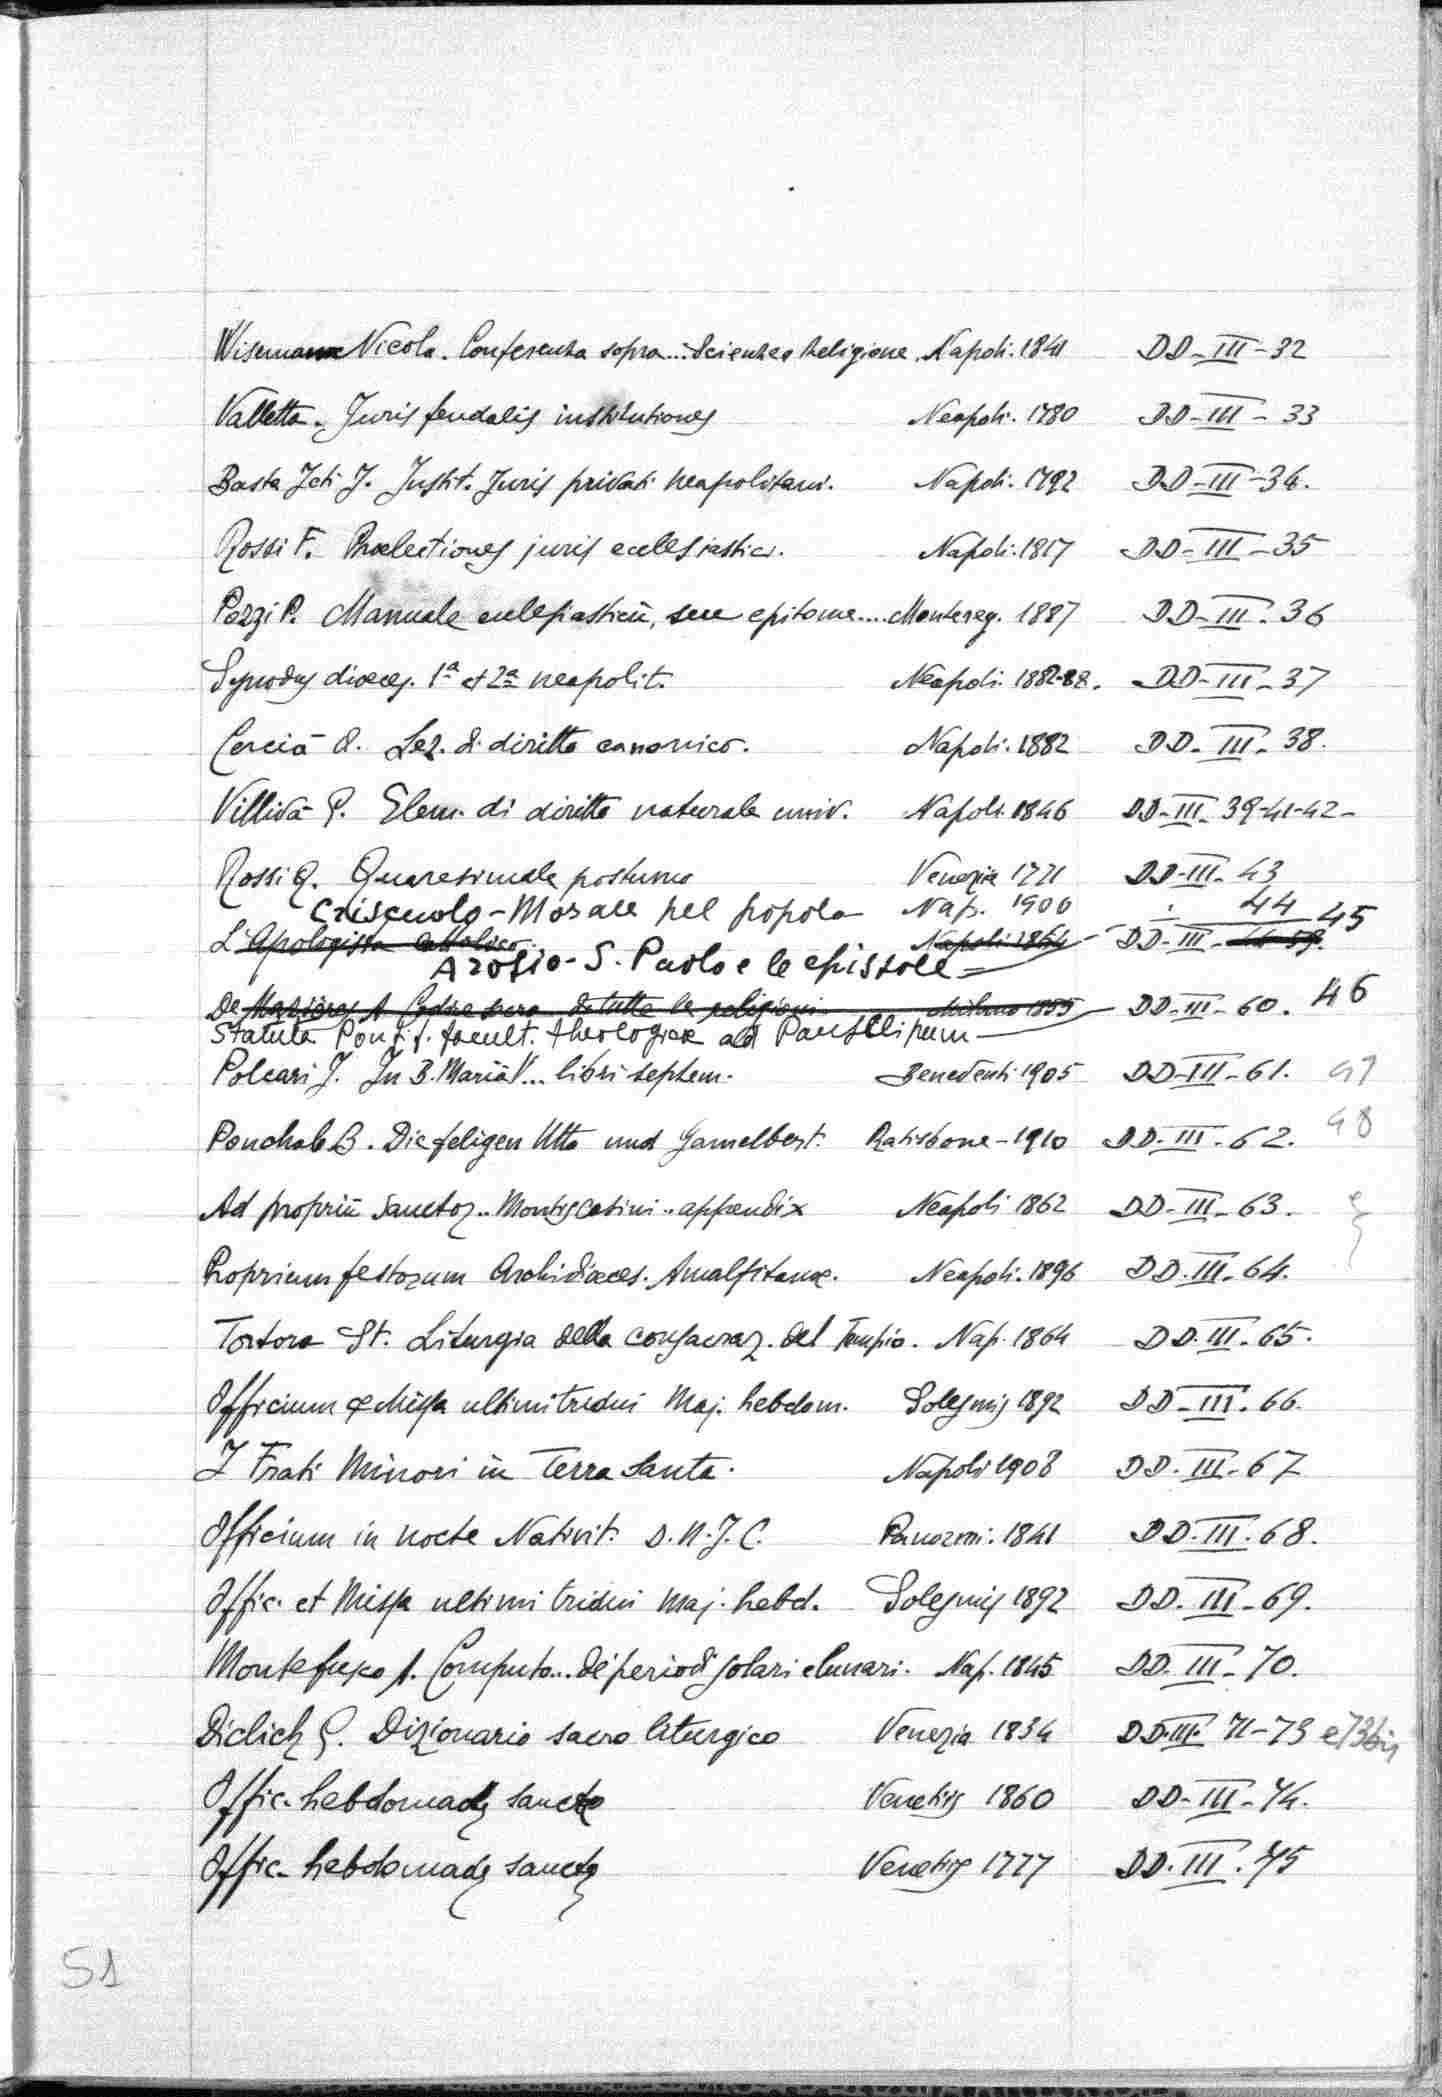 Wisemann Nicola. Conferenza sopra... Scienze e religione. Napoli. 1841 DD-III-32
Valletta. Juris feudalis institutiones Neapoli. 1780 DD-III-33
Basta Jcti J. Instit. Juris privati neapolitani. Napoli. 1792 DD-III-34.
Rossi F. Praelectiones juris ecclesiastici. Napoli. 1817 DD-III-35
Pezzi P. Manuale eclesiasticū, seu epitome.... Montereg. 1887 DD-III-36
Synodus dioeces. 1ª et 2ª neapolit. Neapoli. 1882-88. DD-III-37
Cercià Q. Lez. di diritto canonico. Napoli. 1882 DD-III-38.
Villivà P. Elem. di diritto naturale univ. Napoli. 1846 DD-III-39-41-42-
Rossi Q. Quaresimale postumo Venezia 1771 DD-III-43
Criscuolo - Morale pel popolo Nap. 1900 : 44
L'Apologista cattolico. Napoli 1864 DD-III-44-59. 45
Arosio - S. Paolo e le epistole =
De Mazières A. Codice sacro di tutte le religioni Milano 1855 DD-III-60. 46
Statuta Pontif. facult. theologicae ad Pausilipum
Polcari J. In B. Mariā V... libri septem. Beneventi 1905 DD-III-61. 47
Ponchab B. Die seligen Utto und Gamelbert. Ratisbone-1910 DD-III-62. 48
Ad propriū Sanctor.. Montiscasini.. appendix Neapoli 1862 DD-III-63.
Proprium festorum Archidioeces. Amalfitanae. Neapoli. 1896 DD.III-64.
Tortora St. Liturgia della consacraz. del Tempio. Nap. 1864 DD.III-65.
Officium & Missa ultimi tridui Maj. hebdom. Solesmis 1892 DD-III.66.
I Frati Minori in Terra Santa. Napoli 1908 DD.III-67
Officium in nocte Nativit. D.N.J.C. Panormi. 1841 DD.III.68.
Offic. et Missa ultimi tridui maj. hebd. Solesmis 1892 DD.III-69.
Montefusco A. Computo... de' periodi solari e lunari. Nap. 1845 DD.III-70.
Diclich G. Dizionario sacro liturgico Venezia 1834 DD.III. 71-73 e 73bis
Offic. hebdomadę sanctę Venetiis 1860 DD-III-74.
Offic. hebdomadę sanctę Venetiis 1777 DD.III.75
51